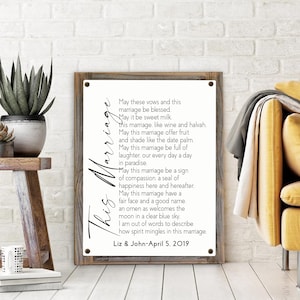 This Marriage
May these vows and this
marriage be blessed.
May it be sweet milk,
this marriage, like wine and halvah.
May this marriage offer fruit
and shade like the date palm.
May this marriage be full of
laughter, our every day a day
in paradise.
May this marriage be a sign
of compassion, a seal of
happiness here and hereafter.
May this marriage have a
fair face and a good name
an omen as welcomes the
moon in a clear blue sky.
I am out of words to describe
how spirit mingles in this marriage.
Liz & John-April 5, 2019